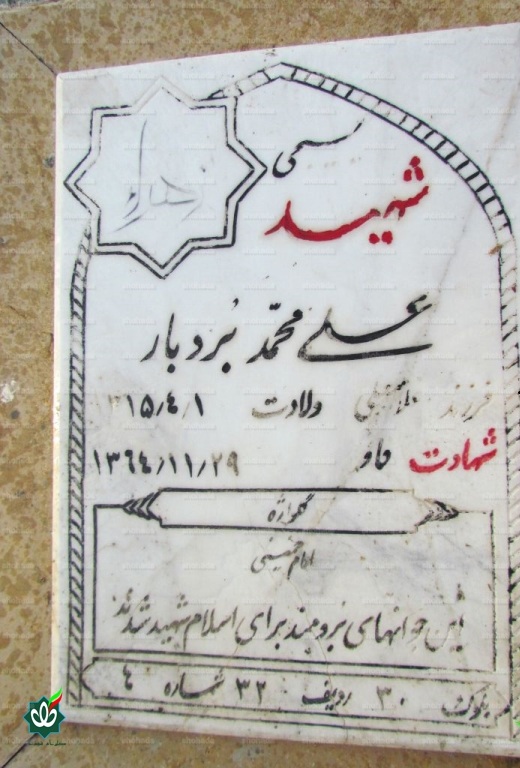 بسمی
زهراء
شهید
علی محمّد بُردبار
فرزند ولادت ۱۵/۴/۱
شهادت فاو ۱۳۶۴/۱۱/۲۹
گلواژه
امام خمینی
این جوانهای نرومند برای اسلام شهید شدند
بلوک ۳۰ ردیف ۳۲ شماره ۴